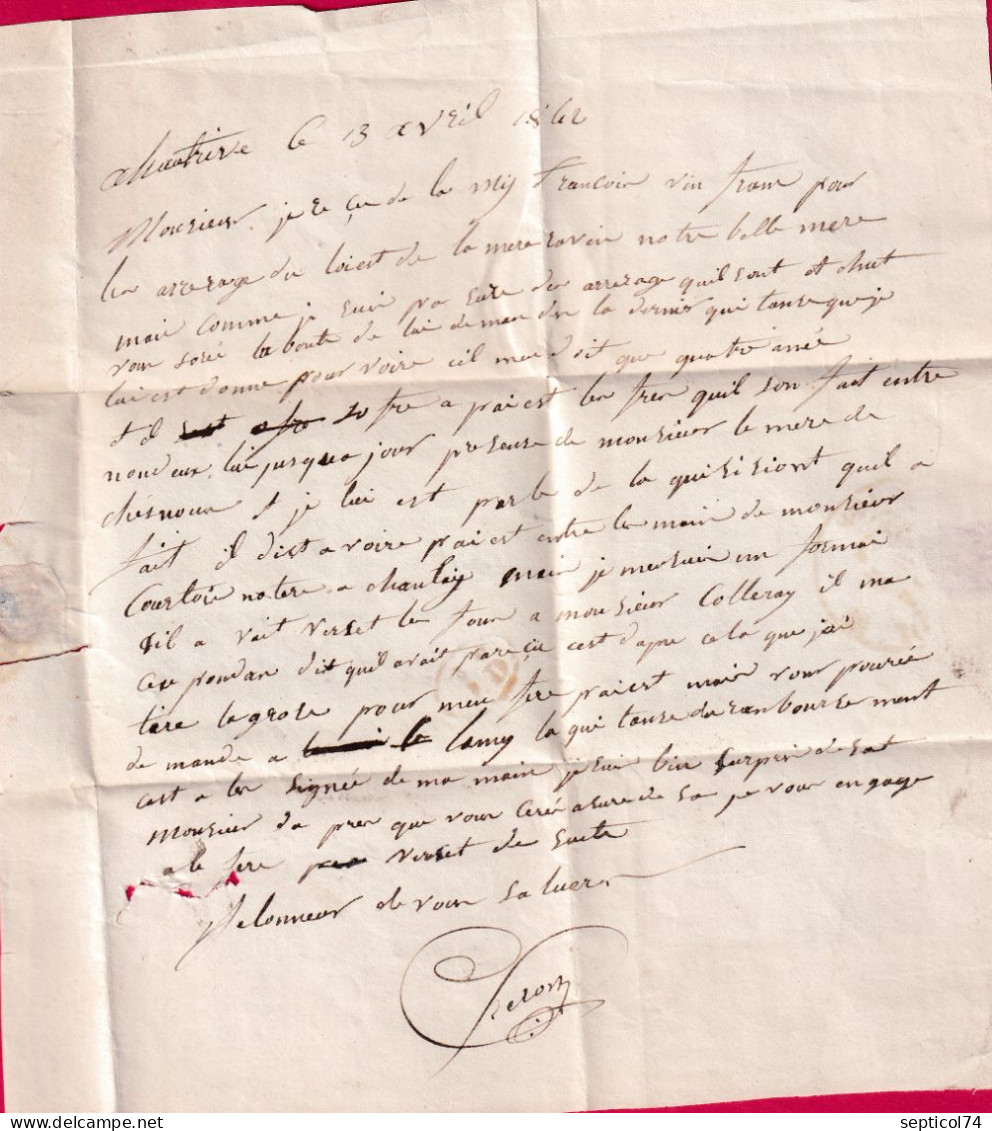 a hauterive le 13 avril 1862
Monsieur je re çu de la Mis francoin vin franc pour
les arrerage du loiest de la mere ravin notre belle mere
mais comme je suis pa sure des arrerage quil sont et dhut
vous soré la bonte de lui demander la dernier qui tanse que je
lui est donne pour voire cil me doit que quatre anée
et il fre a paiest les fres quil son fait entre
nous deux lui jusqua jour presense de monsieur le mere de
chesnoux et je lui est parle de la quisisiont quil a
fait il dist avoire paiest entre les main de monsieur
Courtois notere a chaulay mais je me suis un formai
sil a vait verset les four a monsieur Colleray il ma
cependan dit quil avait pas reçu cest dapre cela que jai
fere la grose pour me fere paiest mais vous pouvée
de mande a lamy la qui tanse du rambourse ment
cest a les signée de ma main je suis bin surpri de sat
Monsieur da pres que vous ceré asure de sa je vous en gage
a le fere verset de suite
Jelonneur de vous saluer
septicol74